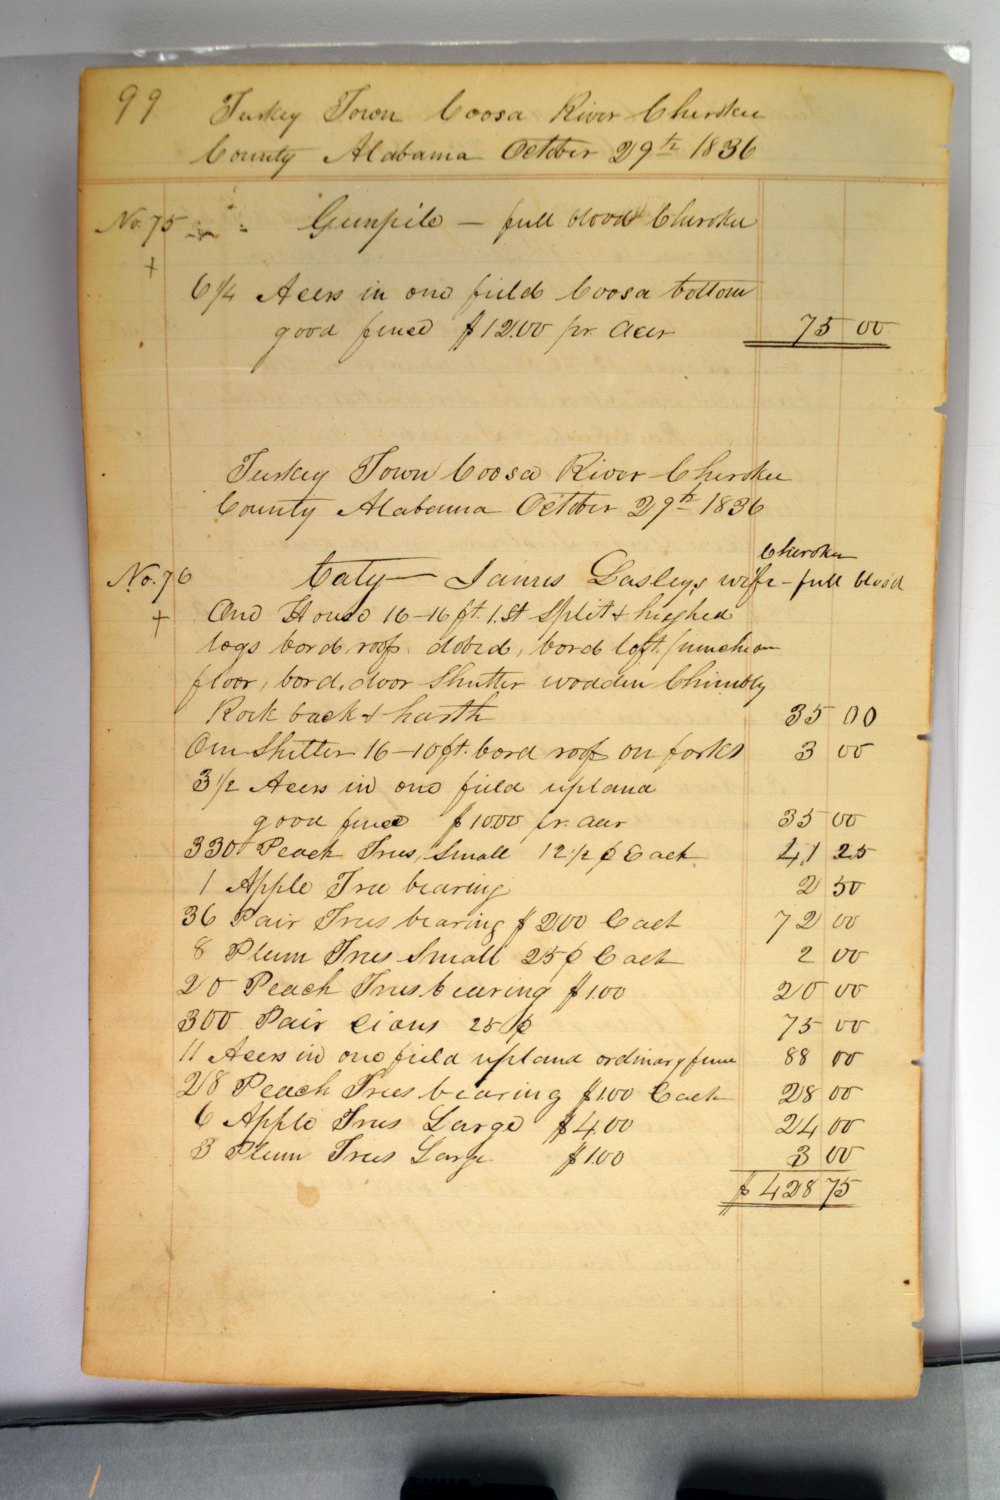 99 Turkey Town Coosa River Cherokee
County Alabama October 29th 1836
No. 75 Gunpile — full blood Cherokee
+
6 1/4 Acers in one field Coosa bottom
good fence $12.00 pr. acer 75 00
Turkey Town Coosa River Cherokee
County Alabama October 29th 1836
Cherokee
No. 76 Caty — James Lasley,s wife – full blood
+ One House 16–16 ft. 1.St Split & hughed
logs bord roof. dobed, bord loft, puncheon
floor, bord, door Shutter wooden Chimbly
Rock back & harth 35 00
One Shelter 16–10 ft. bord roof on forks 3 00
3 1/2 Acers in one field upland
good fence $1000 pr. acer 35 00
330 Peach Trees, Small 12 1/2 ¢ Each 41 25
1 Apple Tree bearing 2 50
36 Pair Trees bearing $200 Each 72 00
8 Plum Trees Small 25 ¢ Each 2 00
20 Peach Trees bearing $100 20 00
300 Pair Cions 25 ¢ 75 00
11 Acers in one field upland ordinary fence 88 00
28 Peach Trees bearing $100 Each 28 00
6 Apple Trees Large $4.00 24 00
3 Plum Trees Large $1.00 3 00
$ 428 75